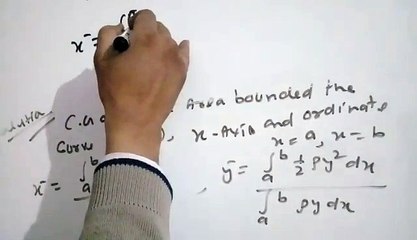 x̄ =
Area bounded the
C.G
Curve , x-Axis and ordinate
x = a, x = b
x̄ = ∫ₐᵇ , ȳ = ∫ₐᵇ ½ ρy² dx / ∫ₐᵇ ρy dx